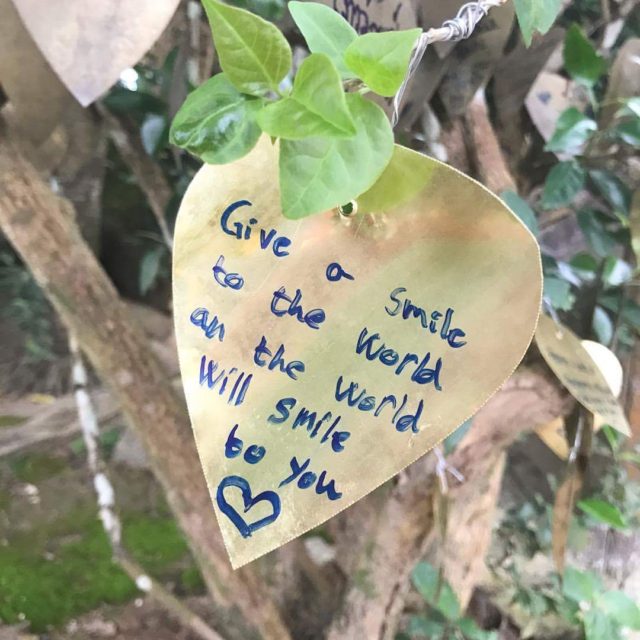 Give a smile
to the World
an the World
Will smile
to you